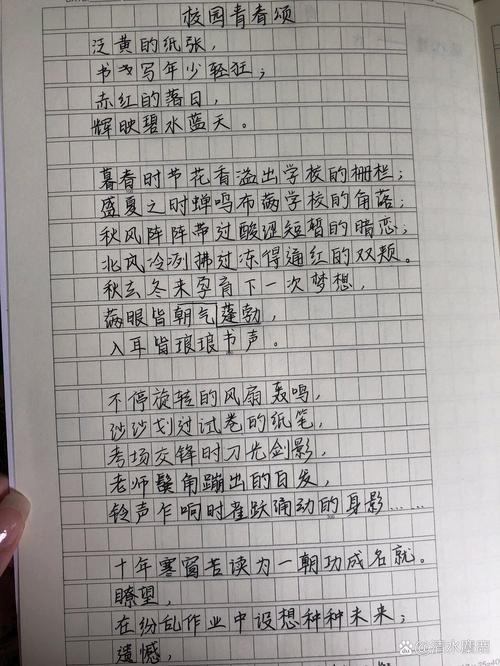 校园青春颂
泛黄的纸张，
书戋写年少轻狂；
赤红的落日，
辉映碧水蓝天。
暮春时节花香溢出学校的栅栏；
盛夏之时蝉鸣布满学校的角落；
秋风阵阵带过酸涩短暂的暗恋；
北风冷冽拂过冻得通红的双颊。
秋去冬来孕育下一次梦想，
满眼皆朝气蓬勃，
入耳皆琅琅书声。
不停旋转的风扇轰鸣，
沙沙划过试卷的纸笔，
考场交锋时刀光剑影，
老师鬓角蹦出的白发，
铃声乍响时雀跃涌动的身影……
十年寒窗苦读为一朝功成名就。
瞭望，
在纷乱作业中设想种种未来；
遗憾，
@清水麋鹿